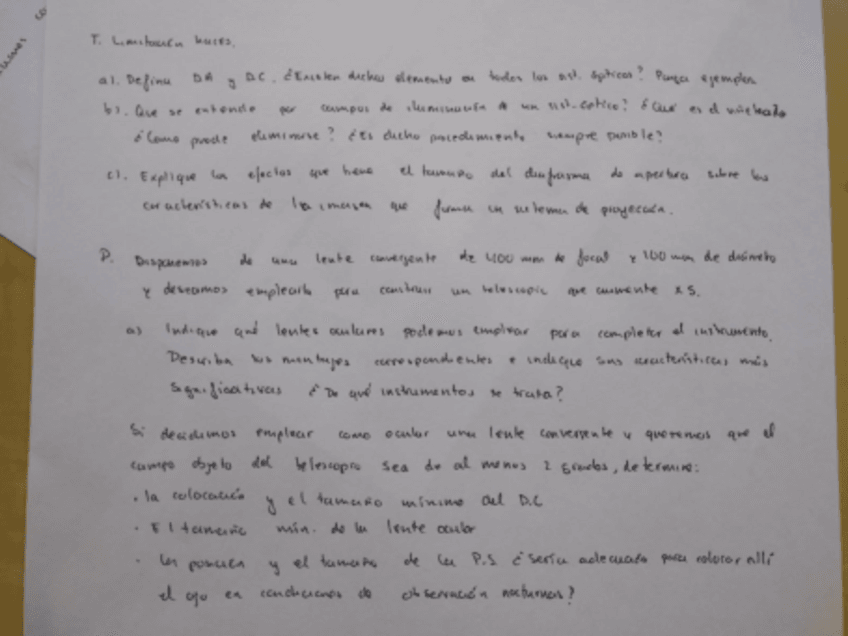 T. Limitación haces.
a). Defina DA y DC. ¿Existen dichos elementos en todos los sist. ópticos? Ponga ejemplos
b). Que se entiende por campos de iluminación de un sist. óptico? ¿Qué es el viñeteado
¿Como puede eliminarse? ¿Es dicho procedimiento siempre posible?
c). Explique los efectos que tiene el tamaño del diafragma de apertura sobre las
características de la imagen que forma un sistema de proyección.
P. Disponemos de una lente convergente de 400 mm de focal y 100 mm de diámetro
y deseamos emplearla para construir un telescopio que aumente x5.
a) Indique qué lentes oculares podemos emplear para completar el instrumento.
Describa los montajes correspondientes e indique sus características más
significativas ¿De qué instrumentos se trata?
Si decidimos emplear como ocular una lente convergente y queremos que el
campo objeto del telescopio sea de al menos 2 grados, determine:
· la colocación y el tamaño mínimo del D.C
· El tamaño min. de la lente ocular
· La posición y el tamaño de la P.S ¿Sería adecuado para colocar allí
el ojo en condiciones de observación nocturnas?